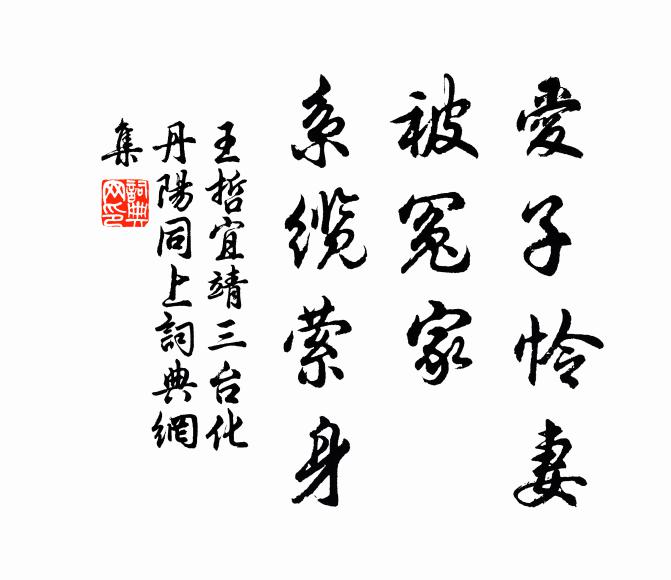 愛子怜妻
被冤家
系缆萦身
王哲宜靖三台化
丹陽同上詞典網
集
詞典
网印